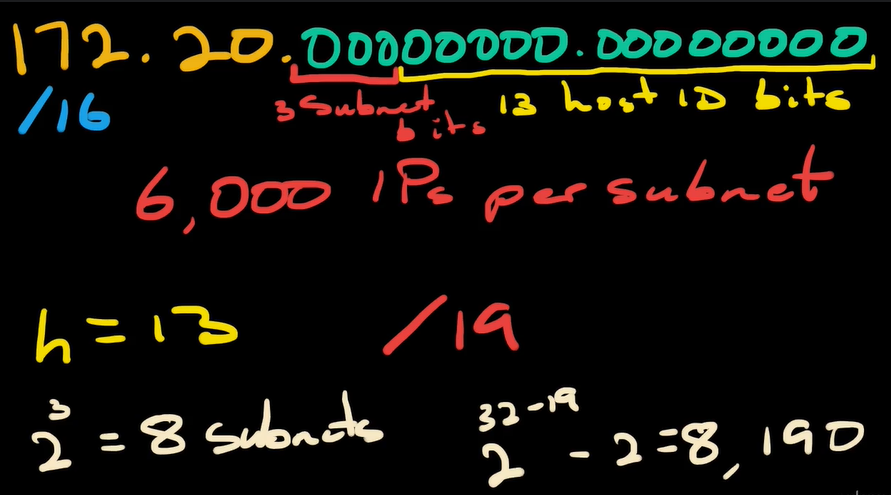 172.20.00000000.00000000
/16
3 Subnet bits
13 host ID bits
6,000 IPs per subnet
h = 13
/19
2^3 = 8 subnets
2^32-19 - 2 = 8,190